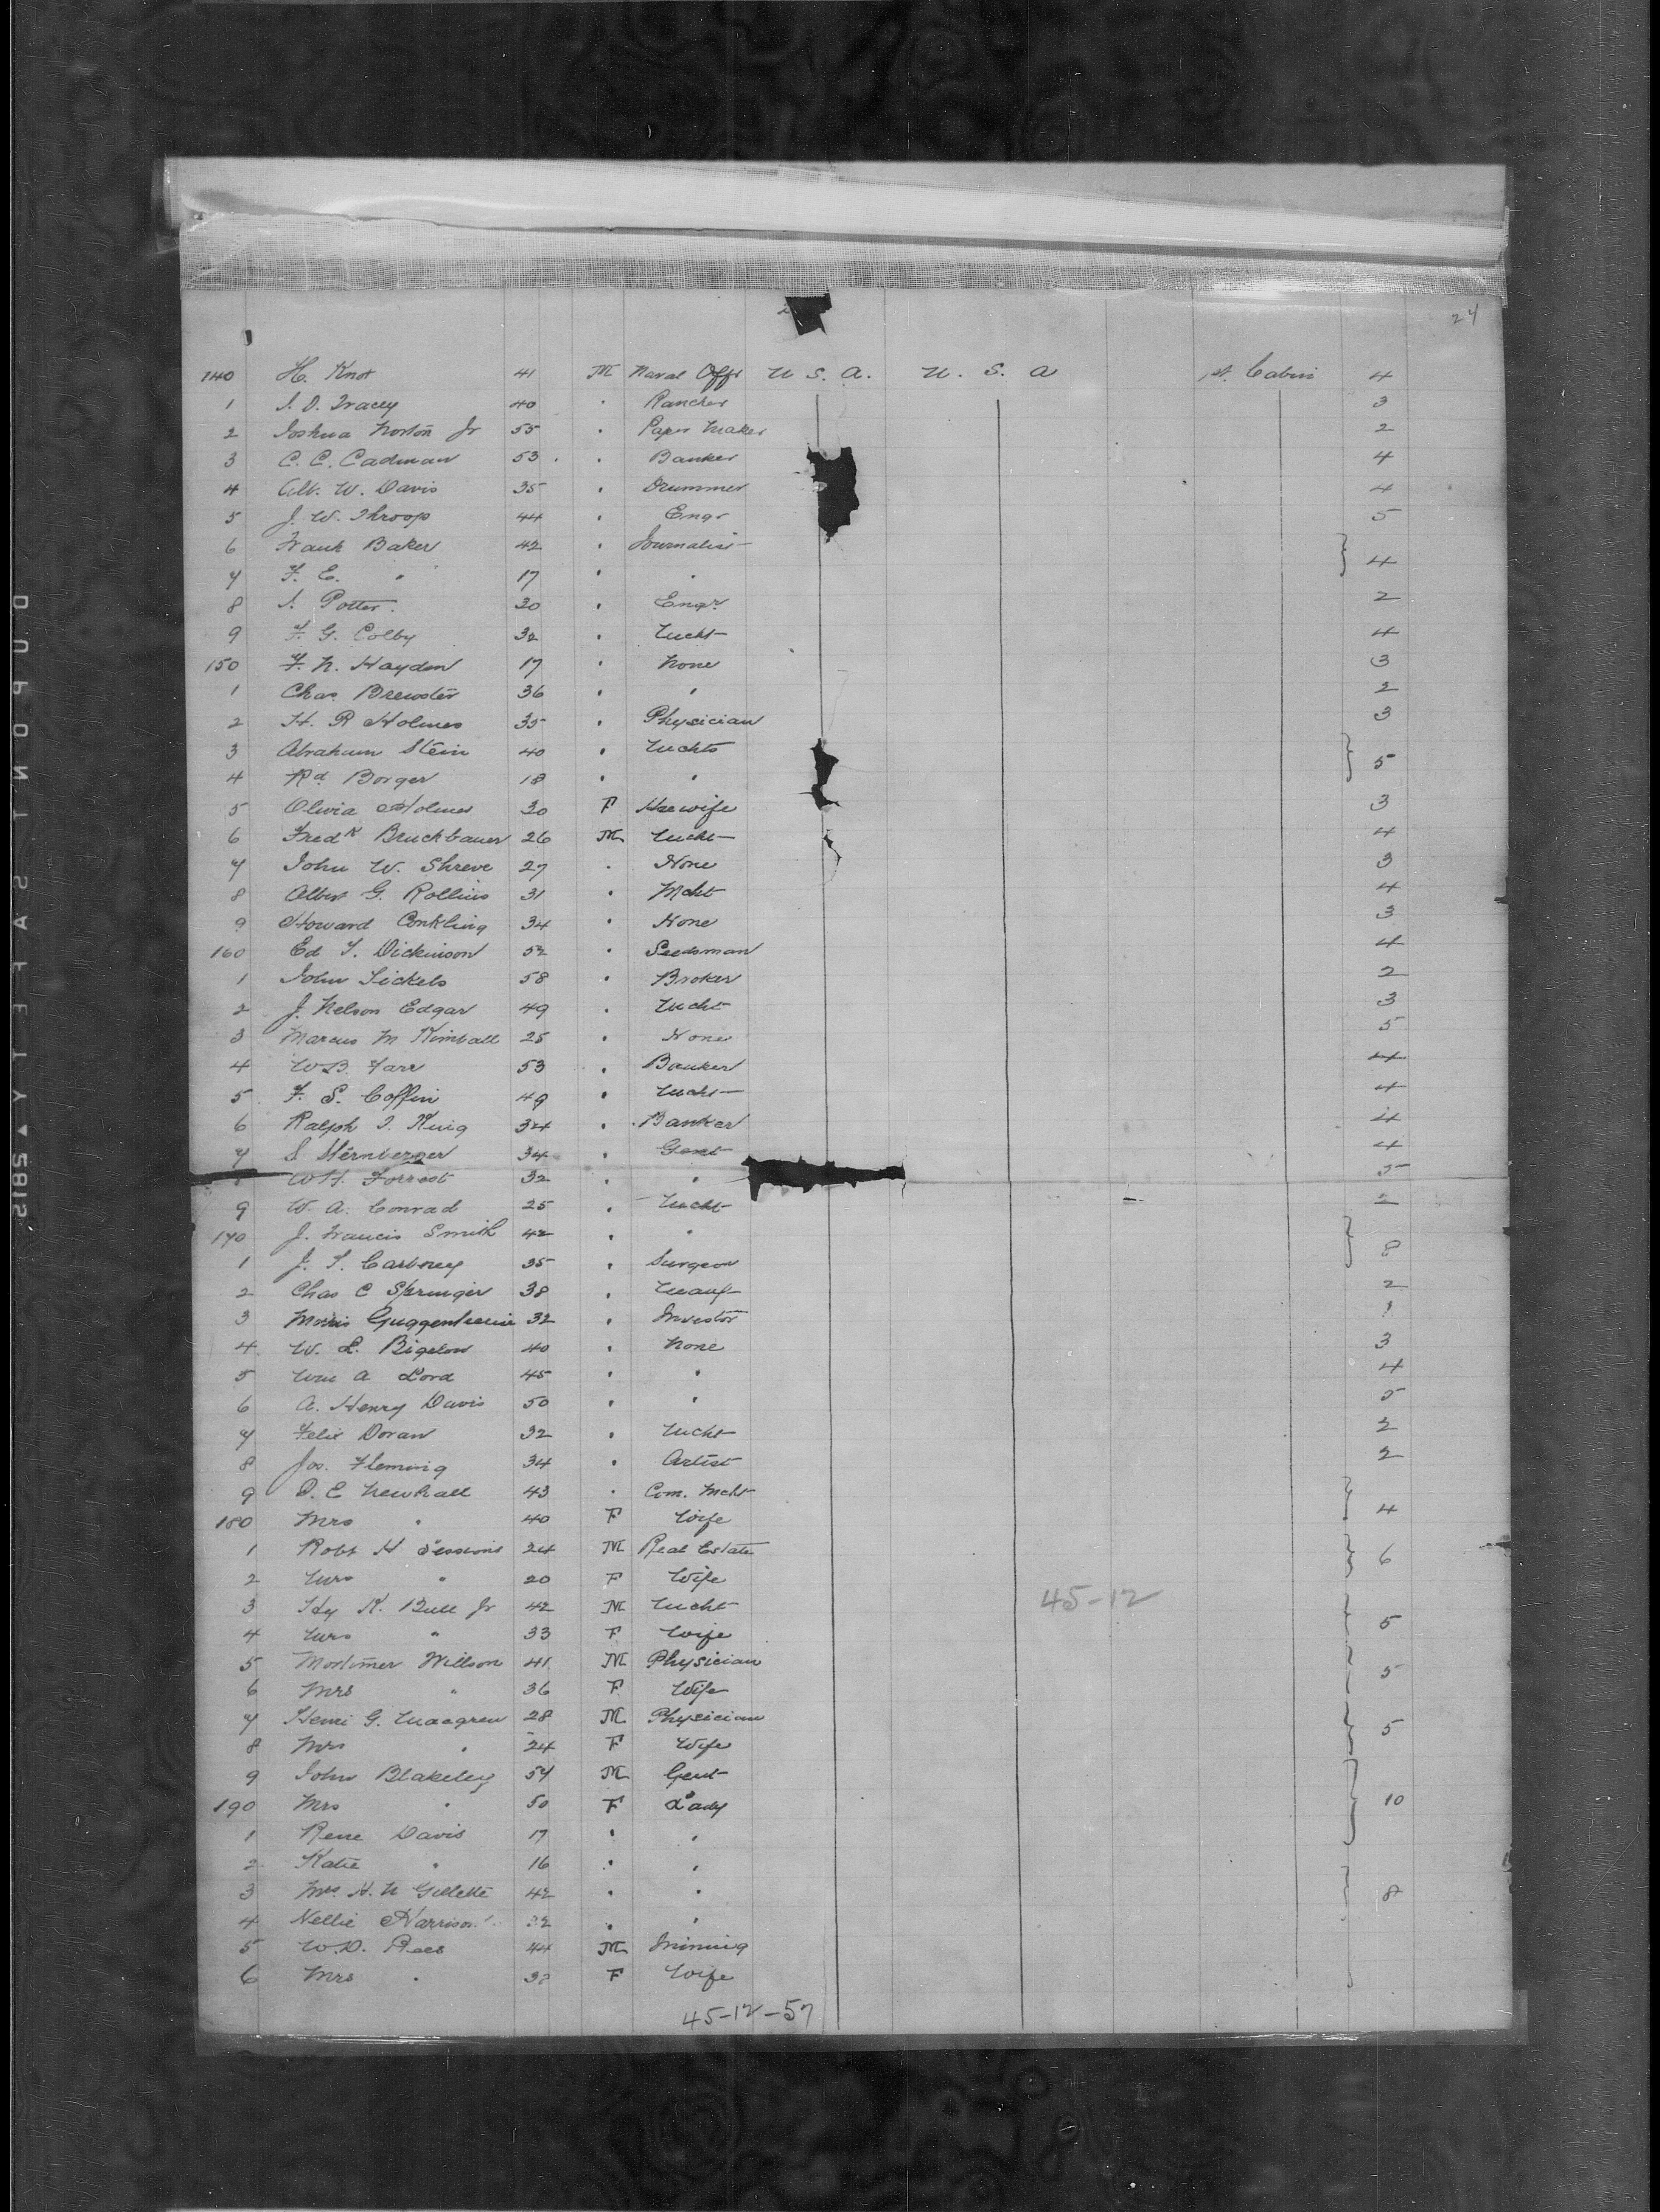 24
140 H. Knot 41 M Naval Offr U S. A. U. S. A 1st. Cabin 4
1 S. D. Tracey 40 " Rancher 3
2 Joshua Norton Jr 55 " Paper Maker 2
3 C. C. Cadman 53 " Banker 4
4 Alb. W. Davis 35 " Drummer 4
5 J. W. Throop 44 " Engr 5
6 Frank Baker 42 " Journalist
7 F. E. " 17 " " 4
8 S. Potter 30 " Engr. 2
9 F. G. Colby 32 " Mcht 4
150 F. N. Hayden 17 " None 3
1 Chas Brewster 36 " " 2
2 H. R Holmes 35 " Physician 3
3 Abraham Stein 40 " Mchts
4 Rd Borger 18 " " 5
5 Olivia Holmes 30 F Hsewife 3
6 Fredk Bruckbauer 26 M Mcht 4
7 John W. Shreve 27 " None 3
8 Albert G. Rollins 31 " Mcht 4
9 Howard Conkling 34 " None 3
160 Ed T. Dickinson 52 " Seedsman 4
1 John Sickels 58 " Broker 2
2 J. Nelson Edgar 49 " Mcht 3
3 Marcus M Kimball 25 " None 5
4 W B. Farr 53 " Banker 4
5 F. S. Coffin 49 " Mcht 4
6 Ralph T. King 34 " Banker 4
7 S Sternberger 34 " Gent 4
W H. Forrest 32 " " 5
9 W. A. Conrad 25 " Mcht 2
170 J. Francis Smith 42 " "
1 J. S. 35 " Surgeon 8
2 Chas C Springer 38 " Manuf 2
3 Morris Guggenheim 32 " Investor 1
4 W. L. Bigelow 40 " None 3
5 Wm A Lord 45 " " 4
6 A. Henry Davis 50 " " 5
7 Felix Doran 32 " Mcht 2
8 Jos. Fleming 34 " Artist 2
9 D. E Newhall 43 " Com. Mcht
180 Mrs " 40 F Wife 4
1 Robt H Sessions 24 M Real Estate 6
2 Mrs " 20 F Wife
3 Hy K. Bull Jr 42 M Mcht 45-12
4 Mrs " 33 F Wife 5
5 Mortimer Willson 41 M Physician
6 Mrs " 36 F Wife 5
7 Henri G. Macgrew 28 M Physician
8 Mrs " 24 F Wife 5
9 John Blakeley 54 M Gent
190 Mrs " 50 F Lady 10
1 Rene Davis 17 " "
2 Katie " 16 " "
3 Mrs H. N Gillette 42 " " 8
4 Nellie Harrison 32 " "
5 W. D. Rees 44 M Mining
6 Mrs " 38 F Wife
45-12-57
DUPONT SAFETY 2815